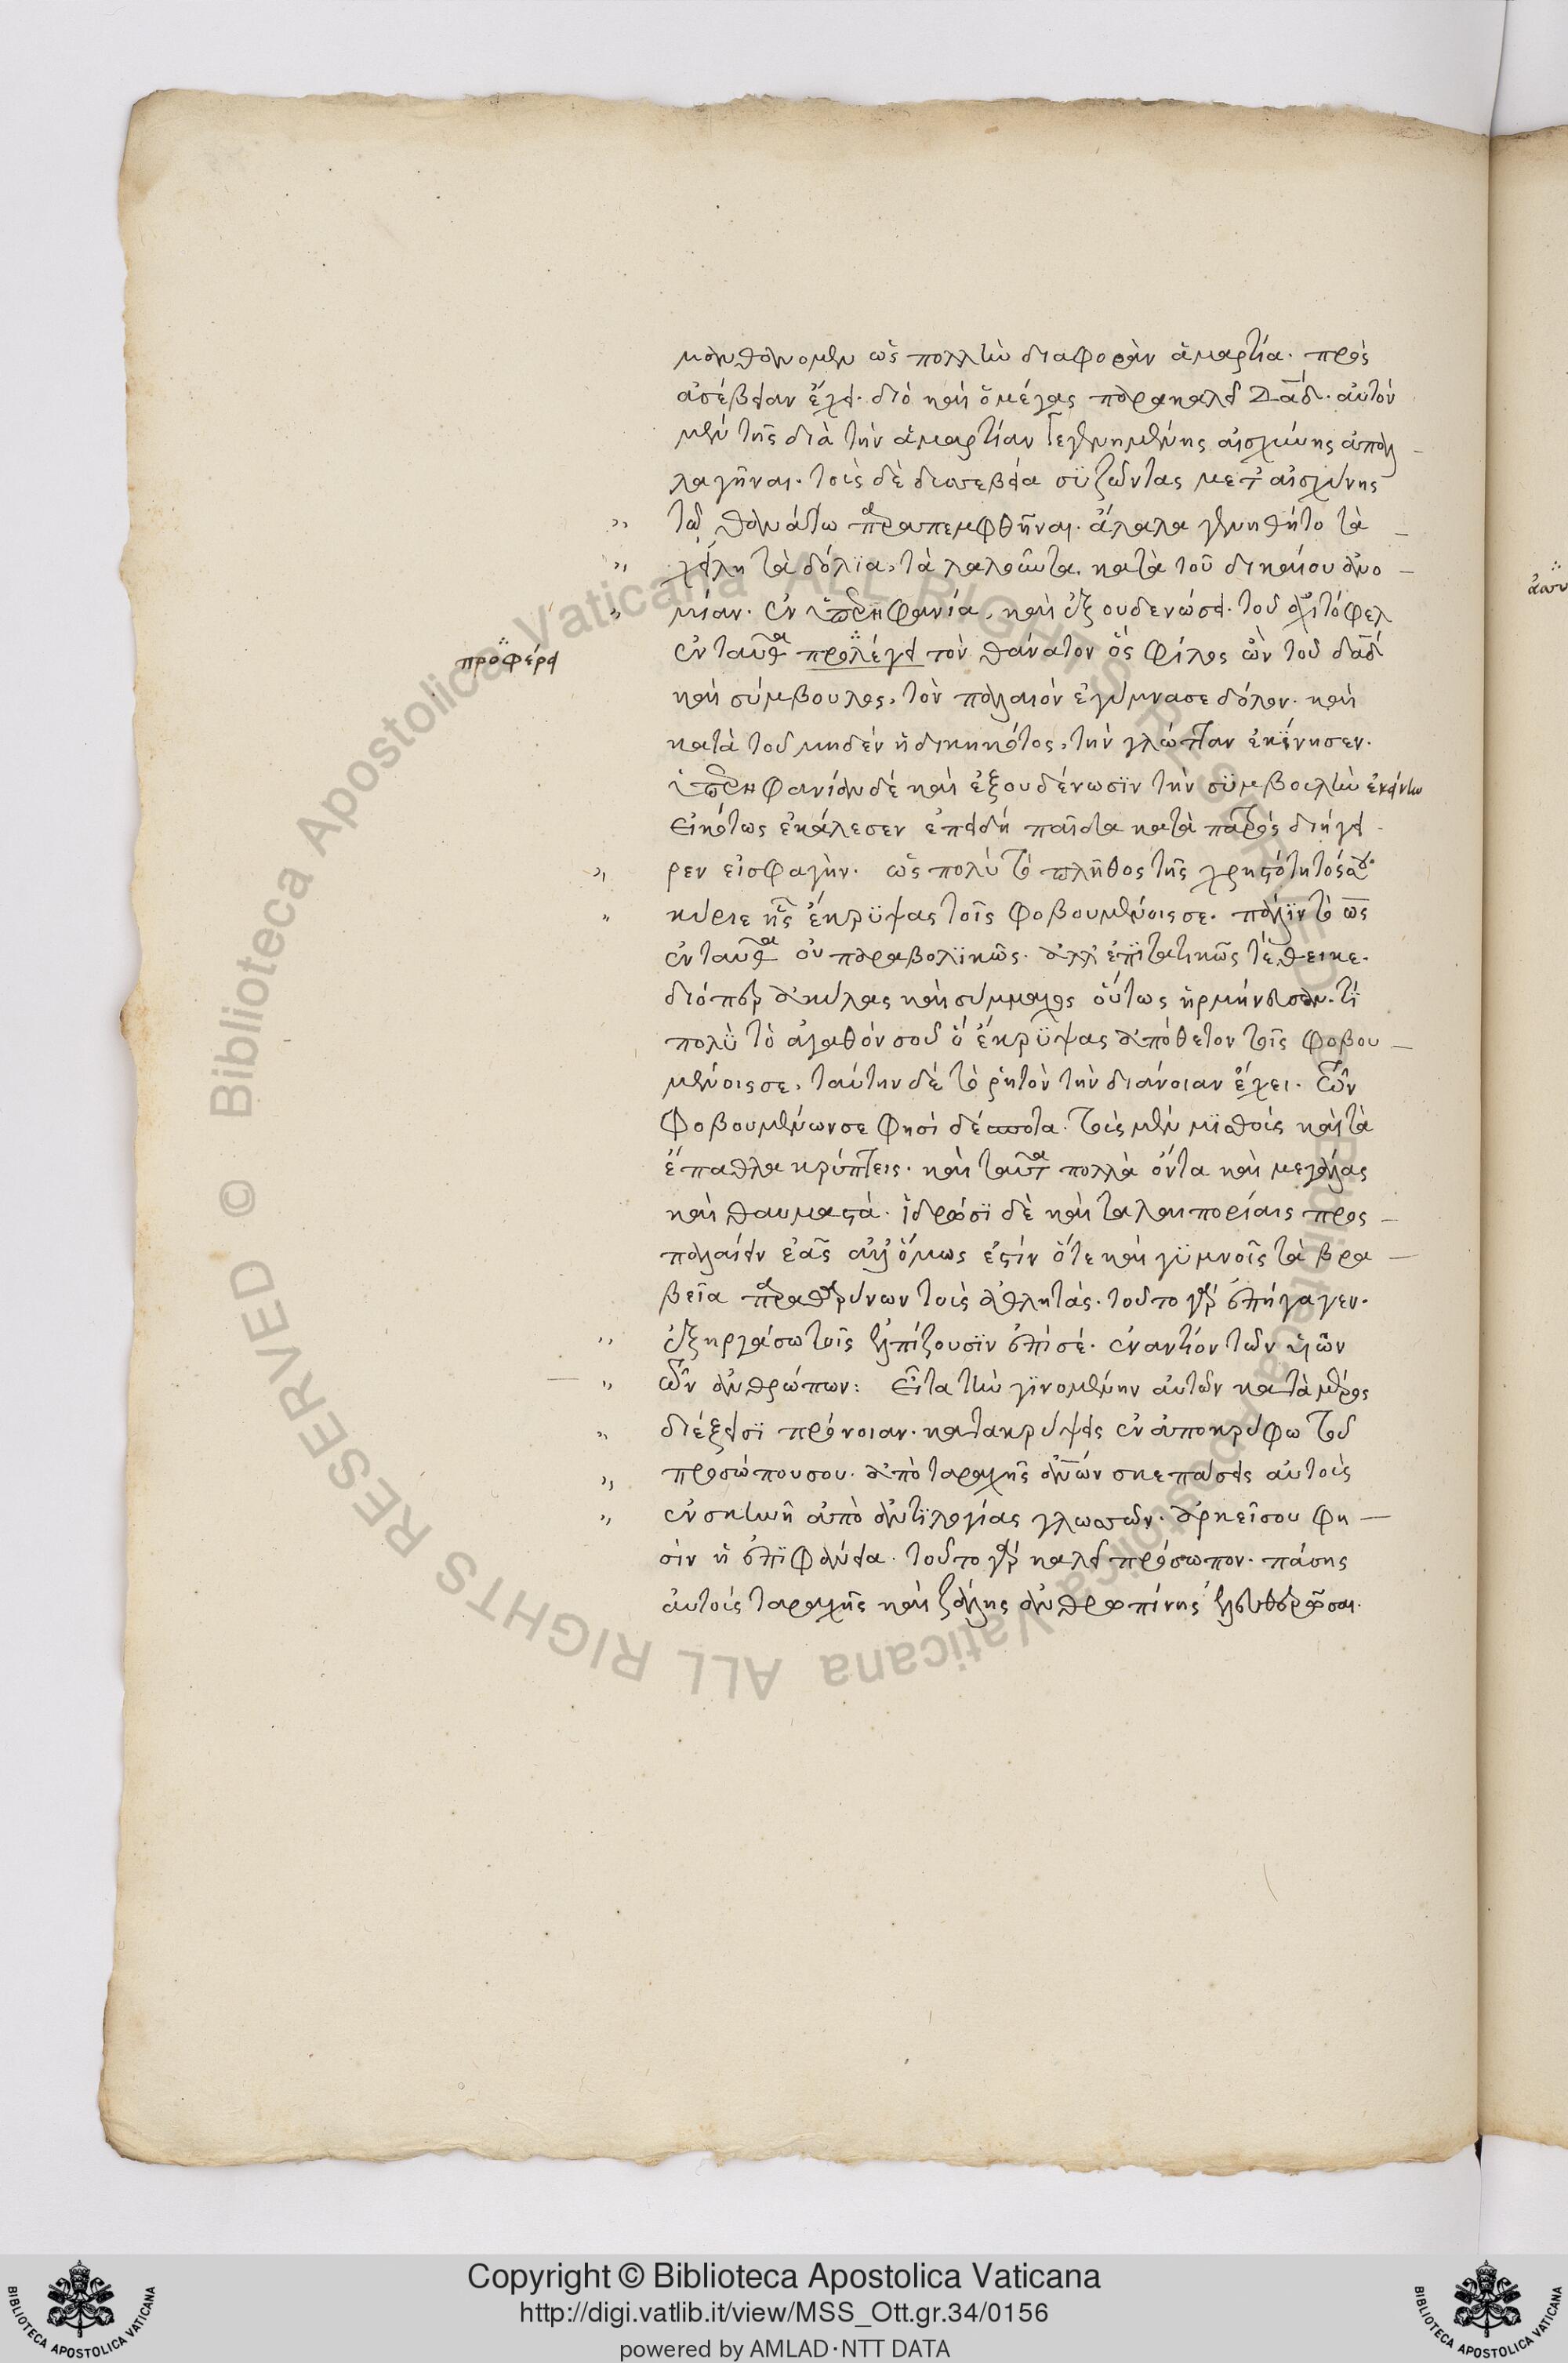 μανθάνομεν ὡς πολλὴν διαφορὰν ἁμαρτία. πρὸς
ἀσέβειαν ἔχει. διὸ καὶ ὁ μέγας παρακαλεῖ Δα̅δ. αὐτὸν
μὲν τῆς διὰ τὴν ἁμαρτίαν γεγενημένης αἰσχύνης ἀπαλ
λαγῆναι. τοὺς δὲ δυσσεβεία συζῶντας μετ' αἰσχύνης
τῶ θανάτω παραπεμφθῆναι. ἄλαλα γενηθήτο τὰ
χείλη τὰ δόλϊα, τὰ λαλοῦντα, κατὰ τοῦ δικαίου ἀνο
μίαν. ἐν ὑπερηφανία, καὶ ἐξουδενώσει. τοῦ ἀχιτόφελ
ἐνταῦθα προλέγει τὸν θάνατον ὃς φίλος ὢν τοῦ δα̅δ
προφέρει
καὶ σύμβουλος, τὸν παλαιὸν ἐγύμνασε δόλον. καὶ
κατὰ τοῦ μηδὲν ἠδικηκότος, τὴν γλῶτταν ἐκίνησεν.
ὑπερηφανίαν δὲ καὶ ἐξουδένωσϊν τὴν συμβουλὴν ἐκείνην
εἰκότως ἐκάλεσεν ἐπειδὴ παῖδα κατὰ πατρὸς διήγει
ρεν εἰσφαγὴν. ὡς πολὺ τὸ πλῆθος τῆς χρηστότητός σου
κύριε ἧς ἔκρυψας τοῖς φοβουμένοις σε. πάλϊν τὸ ὡς
ἐνταῦθα οὐ παραβολϊκῶς. ἀλλ' ἐπϊτατικῶς τέθεικε.
διόπερ ἀκύλας καὶ σύμμαχος οὕτως ἡρμήνευσαν. τί
πολὺ τὸ ἀγαθόν σου ὃ ἔκρυψας ἀπόθετον τοῖς φοβου
μένοις σε, ταύτην δὲ τὸ ῥητὸν τὴν διάνοιαν ἔχει. τῶν
φοβουμένων σε φησὶ δέσποτα. τοὺς μὲν μϊσθοὺς καὶ τὰ
ἔπαθλα κρύπτεις. καὶ ταῦτα πολλὰ ὄντα καὶ μεγάλας
καὶ θαυμαστά. ἱδρῶσϊ δὲ καὶ ταλαιπορίαις προσ
παλαίειν ἐᾶς ἀλλ' ὅμως ἐστὶν ὅτε καὶ γυμνοῖς τὰ βρα
βεῖα παραθαρύνων τοὺς ἀθλητὰς. τοῦτο γὰρ ἐπήγαγεν.
ἐξηργάσω τοῖς ἐλπίζουσϊν ἐπὶ σέ. ἐναντίον τῶν υἱῶν
τῶν ἀνθρώπων: Εἶτα τὴν γϊνομένην αὐτῶν κατὰ μέρος
διέξεισϊ πρόνοιαν. κατακρύψεις ἐν ἀποκρύφω τοῦ
προσώπου σου. ἀπὸ ταραχῆς ἀν̅ων σκεπάσεις αὐτοὺς
ἐν σκηνῆ ἀπὸ ἀντϊλογίας γλωσσῶν. ἀρκεῖ σου φη
σὶν ἡ ἐπϊφάνεια. τοῦτο γὰρ καλεῖ πρόσωπον. πάσης
αὐτοὺς ταραχῆς καὶ ζάλης ἀνθροπίνης ἐλευθερῶσαι.
Copyright © Biblioteca Apostolica Vaticana
http://digi.vatlib.it/view/MSS_Ott.gr.34/0156
powered by AMLAD·NTT DATA
BIBLIOTECA APOSTOLICA VATICANA
BIBLIOTECA APOSTOLICA VATICANA
© Biblioteca Apostolica Vaticana ALL RIGHTS RESERVED
© Biblioteca Apostolica Vaticana ALL RIGHTS RESERVED